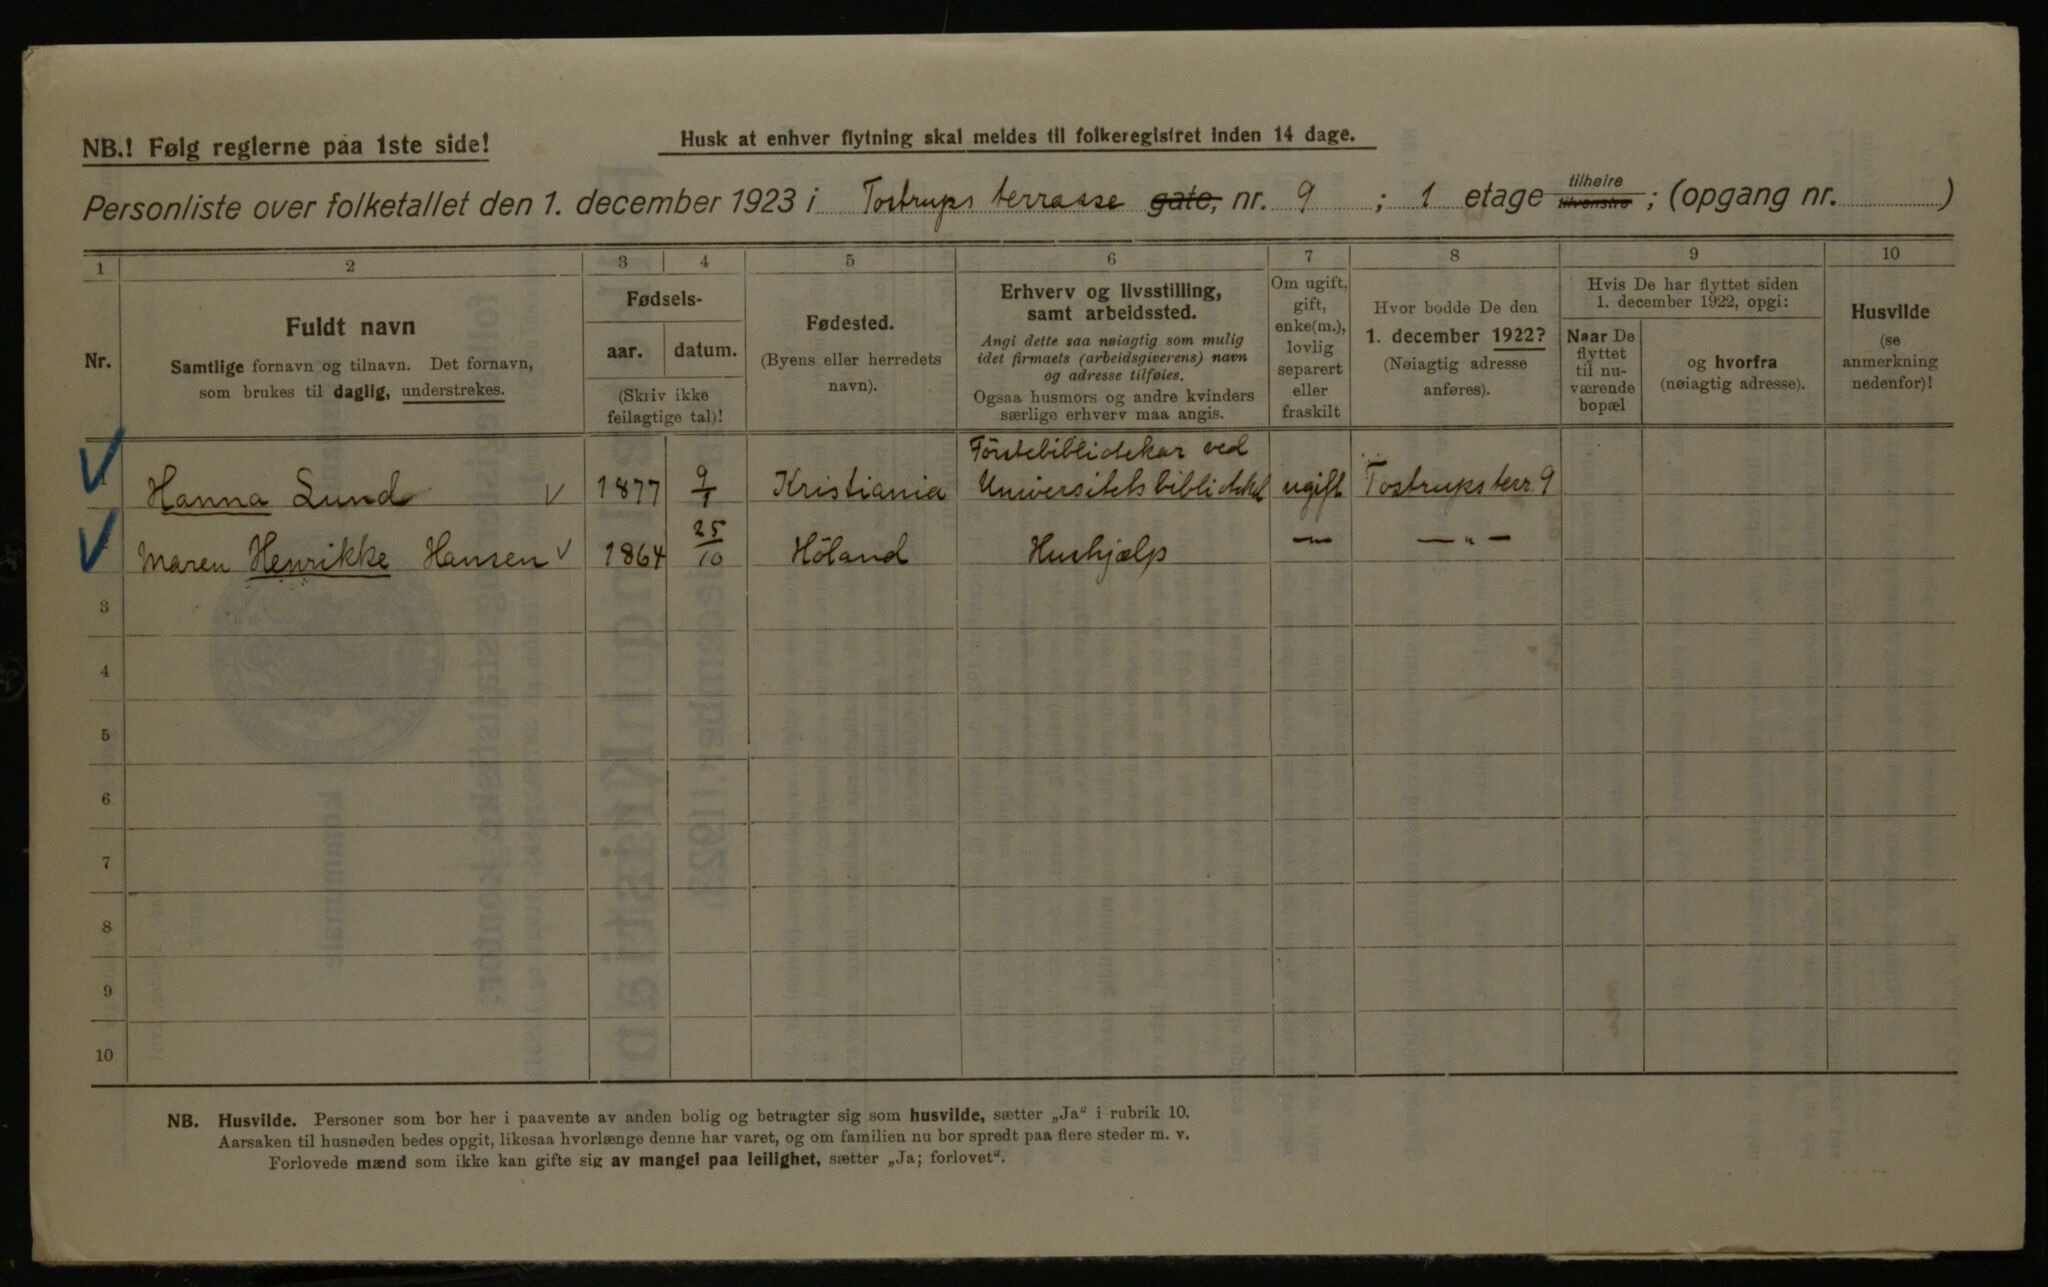 NB.! Følg reglerne paa 1ste side!
Husk at enhver flytning skal meldes til folkeregistret inden 14 dage.
Personliste over folketallet den 1. december 1923 i Tostrups terrasse gate, nr. 9 ; 1 etage tilhøire tilvenstre ; (opgang nr. )
1 2 3 4 5 6 7 8 9 10
Nr.
Fuldt navn
Samtlige fornavn og tilnavn. Det fornavn,
som brukes til daglig, understrekes.
Fødsels-
aar. datum.
(Skriv ikke
feilagtige tal)!
Fødested.
(Byens eller herredets
navn).
Erhverv og livsstilling,
samt arbeidssted.
Angi dette saa nøiagtig som mulig
idet firmaets (arbeidsgiverens) navn
og adresse tilføies.
Ogsaa husmors og andre kvinders
særlige erhverv maa angis.
Om ugift,
gift,
enke(m.),
lovlig
separert
eller
fraskilt
Hvor bodde De den
1. december 1922?
(Nøiagtig adresse
anføres).
Hvis De har flyttet siden
1. december 1922, opgi:
Naar De
flyttet
til nu-
værende
bopæl
og hvorfra
(nøiagtig adresse).
Husvilde
(se
anmerkning
nedenfor)!
Förstebibliotekar ved
Hanna Lund v 1877 9/1 Kristiania Universitetsbiblioteket ugift Tostrups terr. 9
Maren Henrikke Hansen v 1864 25/10 Höland Hushjælp — — " —
3
4
5
6
7
8
9
10
NB. Husvilde. Personer som bor her i paavente av anden bolig og betragter sig som husvilde, sætter „Ja“ i rubrik 10.
Aarsaken til husnøden bedes opgit, likesaa hvorlænge denne har varet, og om familien nu bor spredt paa flere steder m. v.
Forlovede mænd som ikke kan gifte sig av mangel paa leilighet, sætter „Ja; forlovet“.